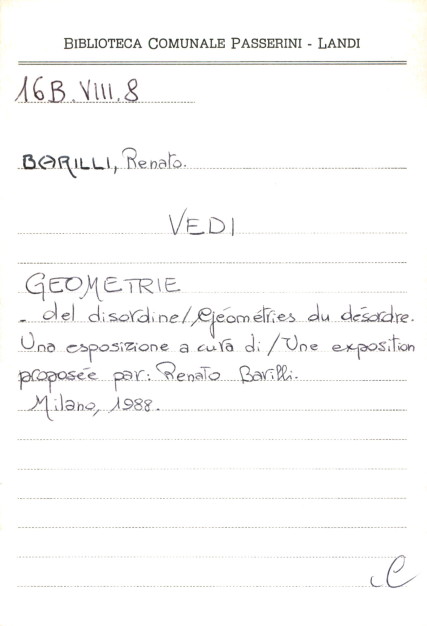 BIBLIOTECA COMUNALE PASSERINI - LANDI
16B.VIII.8
BARILLI, Renato.
VEDI
GEOMETRIE
- del disordine/Géométries du désordre.
Una esposizione a cura di/Une exposition
proposée par: Renato Barilli.
Milano, 1988.
C